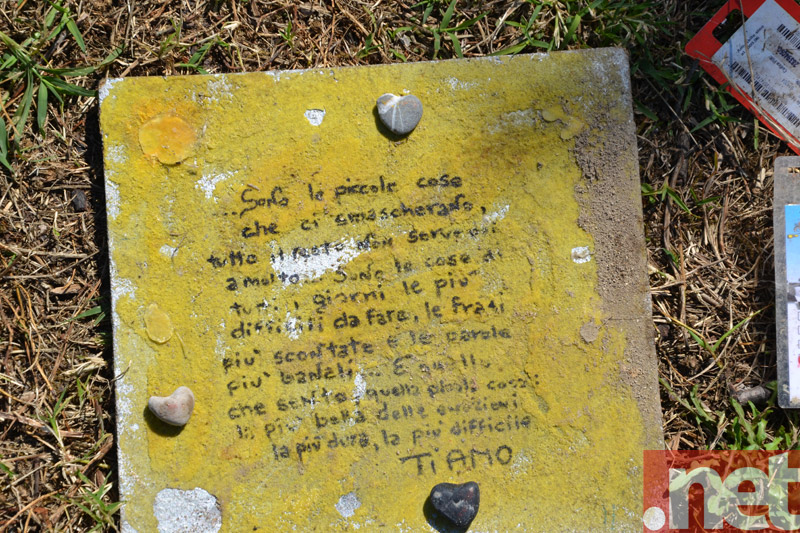 ...Sono le piccole cose
che ci smascherano,
tutto il resto non serve
a molto... Sono le cose di
tutti i giorni le più
difficili da fare, le frasi
più scontate e le parole
più banali... E quella
che sento, quella piccola cosa:
la più bella delle emozioni
la più dura, la più difficile
TI AMO
.net